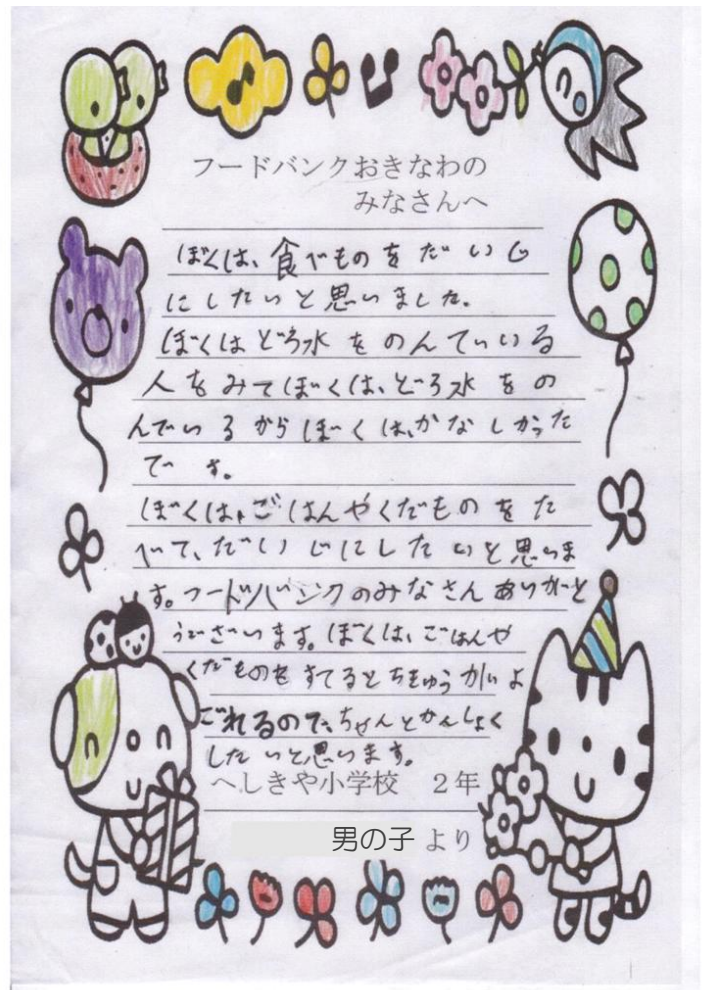 フードバンクおきなわの
みなさんへ
ぼくは、食べものをだいじ
にしたいと思いました。
ぼくはどろ水をのんでいる
人をみてぼくは、どろ水をの
んでいるからぼくは、かなしかった
です。
ぼくは、ごはんやくだものをた
べて、だいじにしたいと思いま
す。フードバンクのみなさんありがと
うございます。ぼくは、ごはんや
くだものをすてるとちきゅうがいよ
ごれるので、ちゃんとかんしょく
したいと思います。
へしきや小学校 2年
男の子 より